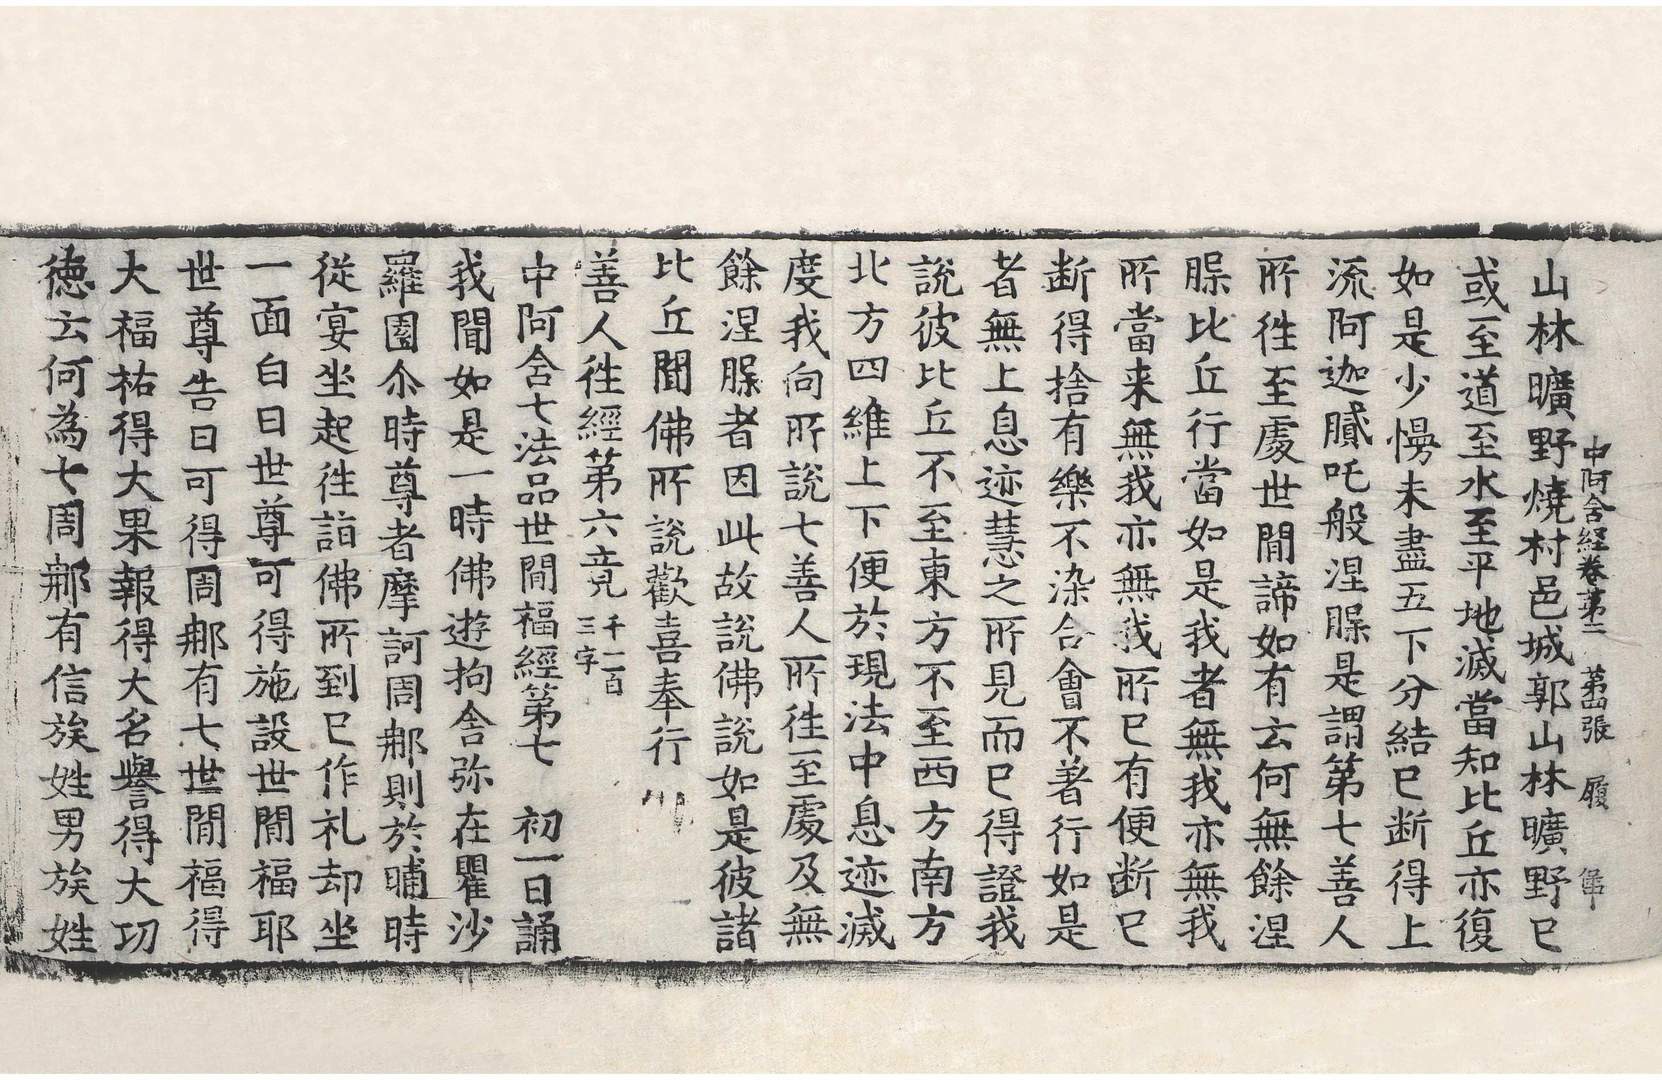 中阿含経卷第二　第廿四張　履
山林曠野燒村邑城郭山林曠野已
或至道至水至平地滅當知比丘亦復
如是少慢未盡五下分結已断得上
流阿迦膩吒般涅槃是謂第七善人
所徃至處世閒諦如有云何無餘涅
槃比丘行當如是我者無我亦無我
所當来無我亦無我所已有便断已
断得捨有樂不染合會不著行如是
者無上息迹慧之所見而已得證我
說彼比丘不至東方不至西方南方
北方四維上下便於現法中息迹滅
度我向所說七善人所徃至處及無
餘涅槃者因此故說佛說如是彼諸
比丘聞佛所說歡喜奉行
善人徃經第六竟　千一百三字
中阿含七法品世閒福經第七　初一日誦
我聞如是一時佛遊拘舍弥在瞿沙
羅園尒時尊者摩訶周那則於晡時
從宴坐起徃詣佛所到已作礼却坐
一面白曰世尊可得施設世閒福耶
世尊告曰可得周那有七世閒福得
大福祐得大果報得大名譽得大功
德云何為七周那有信族姓男族姓